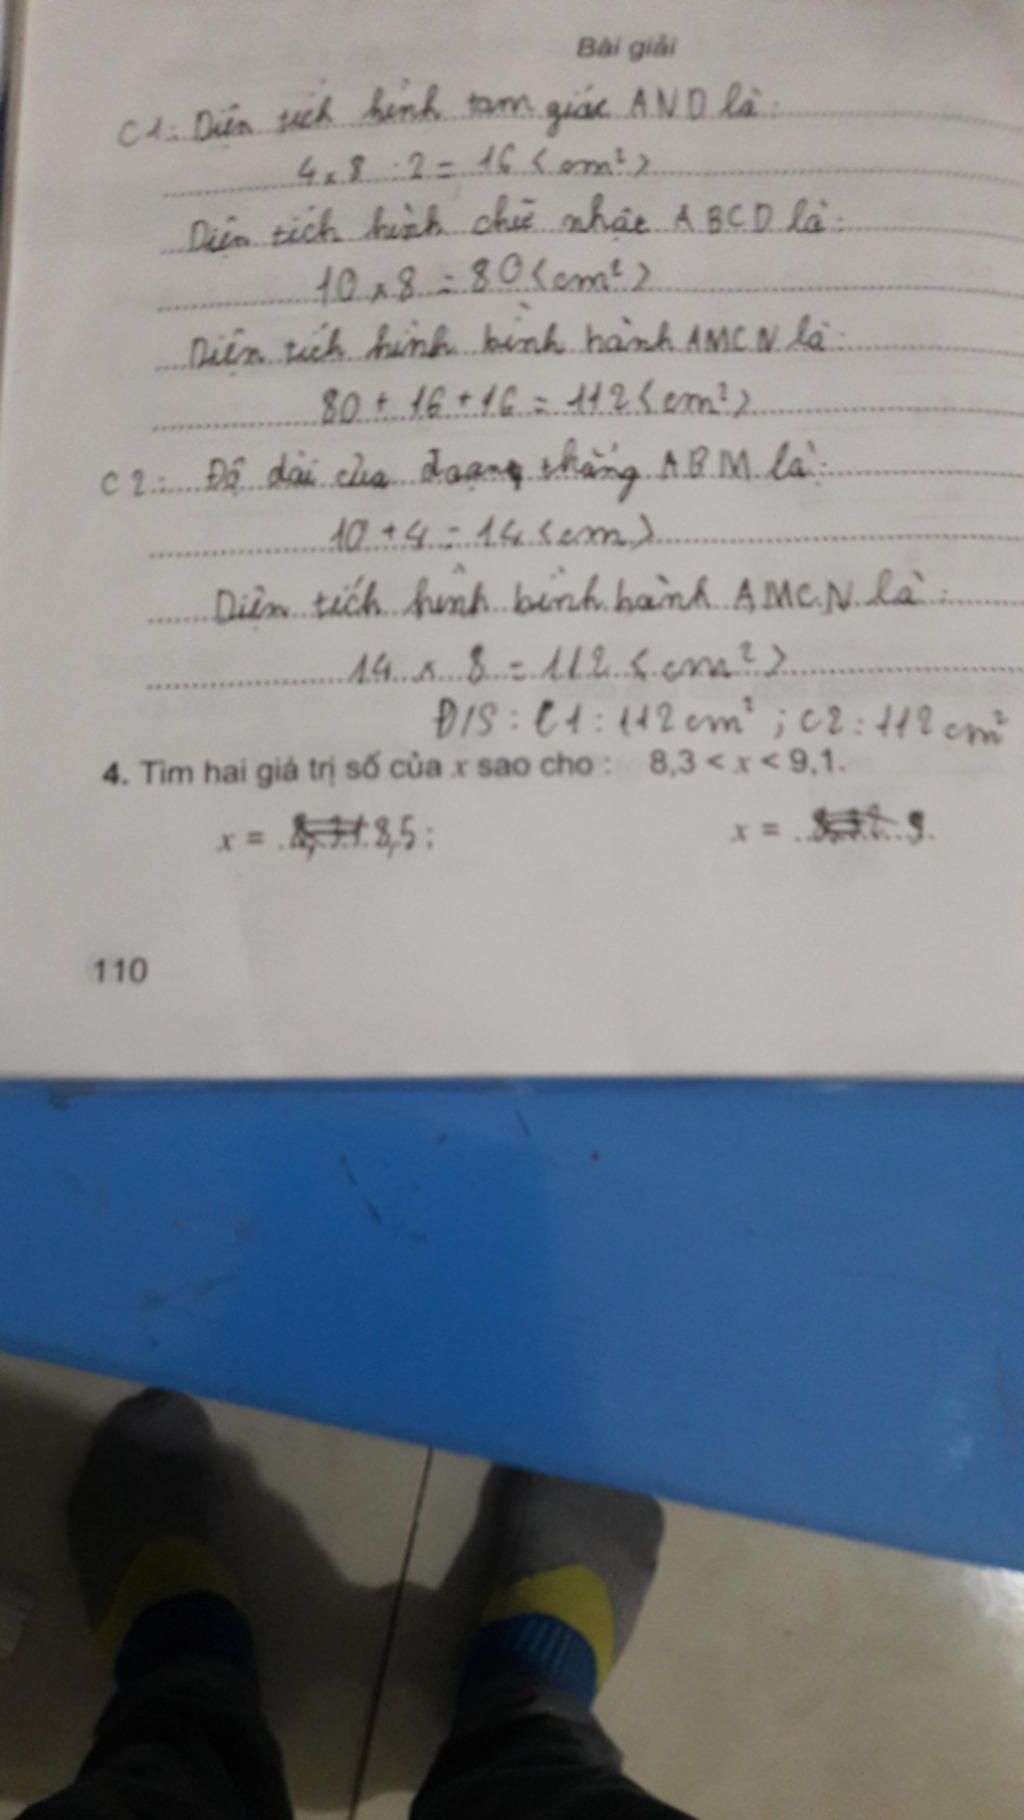 Bài giải
C1: Diện tích hình tam giác AND là:
4 x 8 : 2 = 16 (cm²)
Diện tích hình chữ nhật ABCD là:
10 x 8 = 80 (cm²)
Diện tích hình bình hành AMCN là:
80 + 16 + 16 = 112 (cm²)
C2: Độ dài của đoạn thẳng ABM là:
10 + 4 = 14 (cm)
Diện tích hình bình hành AMCN là:
14 x 8 = 112 (cm²)
Đ/S: C1: 112 cm²; C2: 112 cm²
4. Tìm hai giá trị số của x sao cho : 8,3 < x < 9,1.
x = 8,5 ; x = 9
110